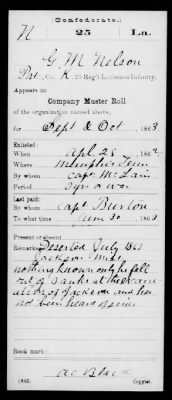 (Confederate.)
N 25 La.
G. M. Nelson
Pvt, Co. K, 25 Reg't Louisiana Infantry.
Appears on
Company Muster Roll
of the organization named above,
for Sept & Oct, 1863.
Enlisted:
When Apl. 28, 1862
Where Memphis Tenn
By whom Capt. McLain
Period 3 yrs or war
Last paid:
By whom Capt Burton
To what time June 30, 1863
Present or absent
Remarks: Deserted July 1863
Jackson Miss.
nothing known only he fell
out of ranks at the evacu-
ation of Jackson and has
not been heard of since
Book mark:
(642) Copyist.